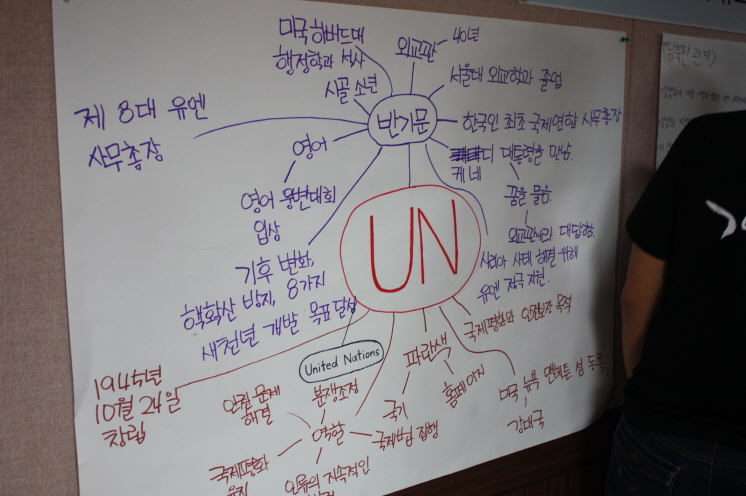 미국 하버드대
행정학과 석사
외교관
40년
시골 소년
서울대 외교학과 졸업
제 8대 유엔
사무총장
반기문
한국인 최초 국제연합 사무총장
영어
케네디 대통령을 만남
꿈을 물음
영어 웅변대회
입상
외교관이라 대답함.
기후 변화,
핵확산 방지, 8가지
새천년 개발 목표 달성
시리아 사태 해결 위해
유엔 적극 지원.
UN
United Nations
국제평화와 안전보장 목적
파란색
국기
홈페이지
미국 뉴욕 맨해튼 섬 동쪽
강대국
1945년
10월 24일
창립
인권 문제
해결
분쟁조정
역할
국제법 집행
국제평화
유지
인류의 지속적인
남북한 관계>